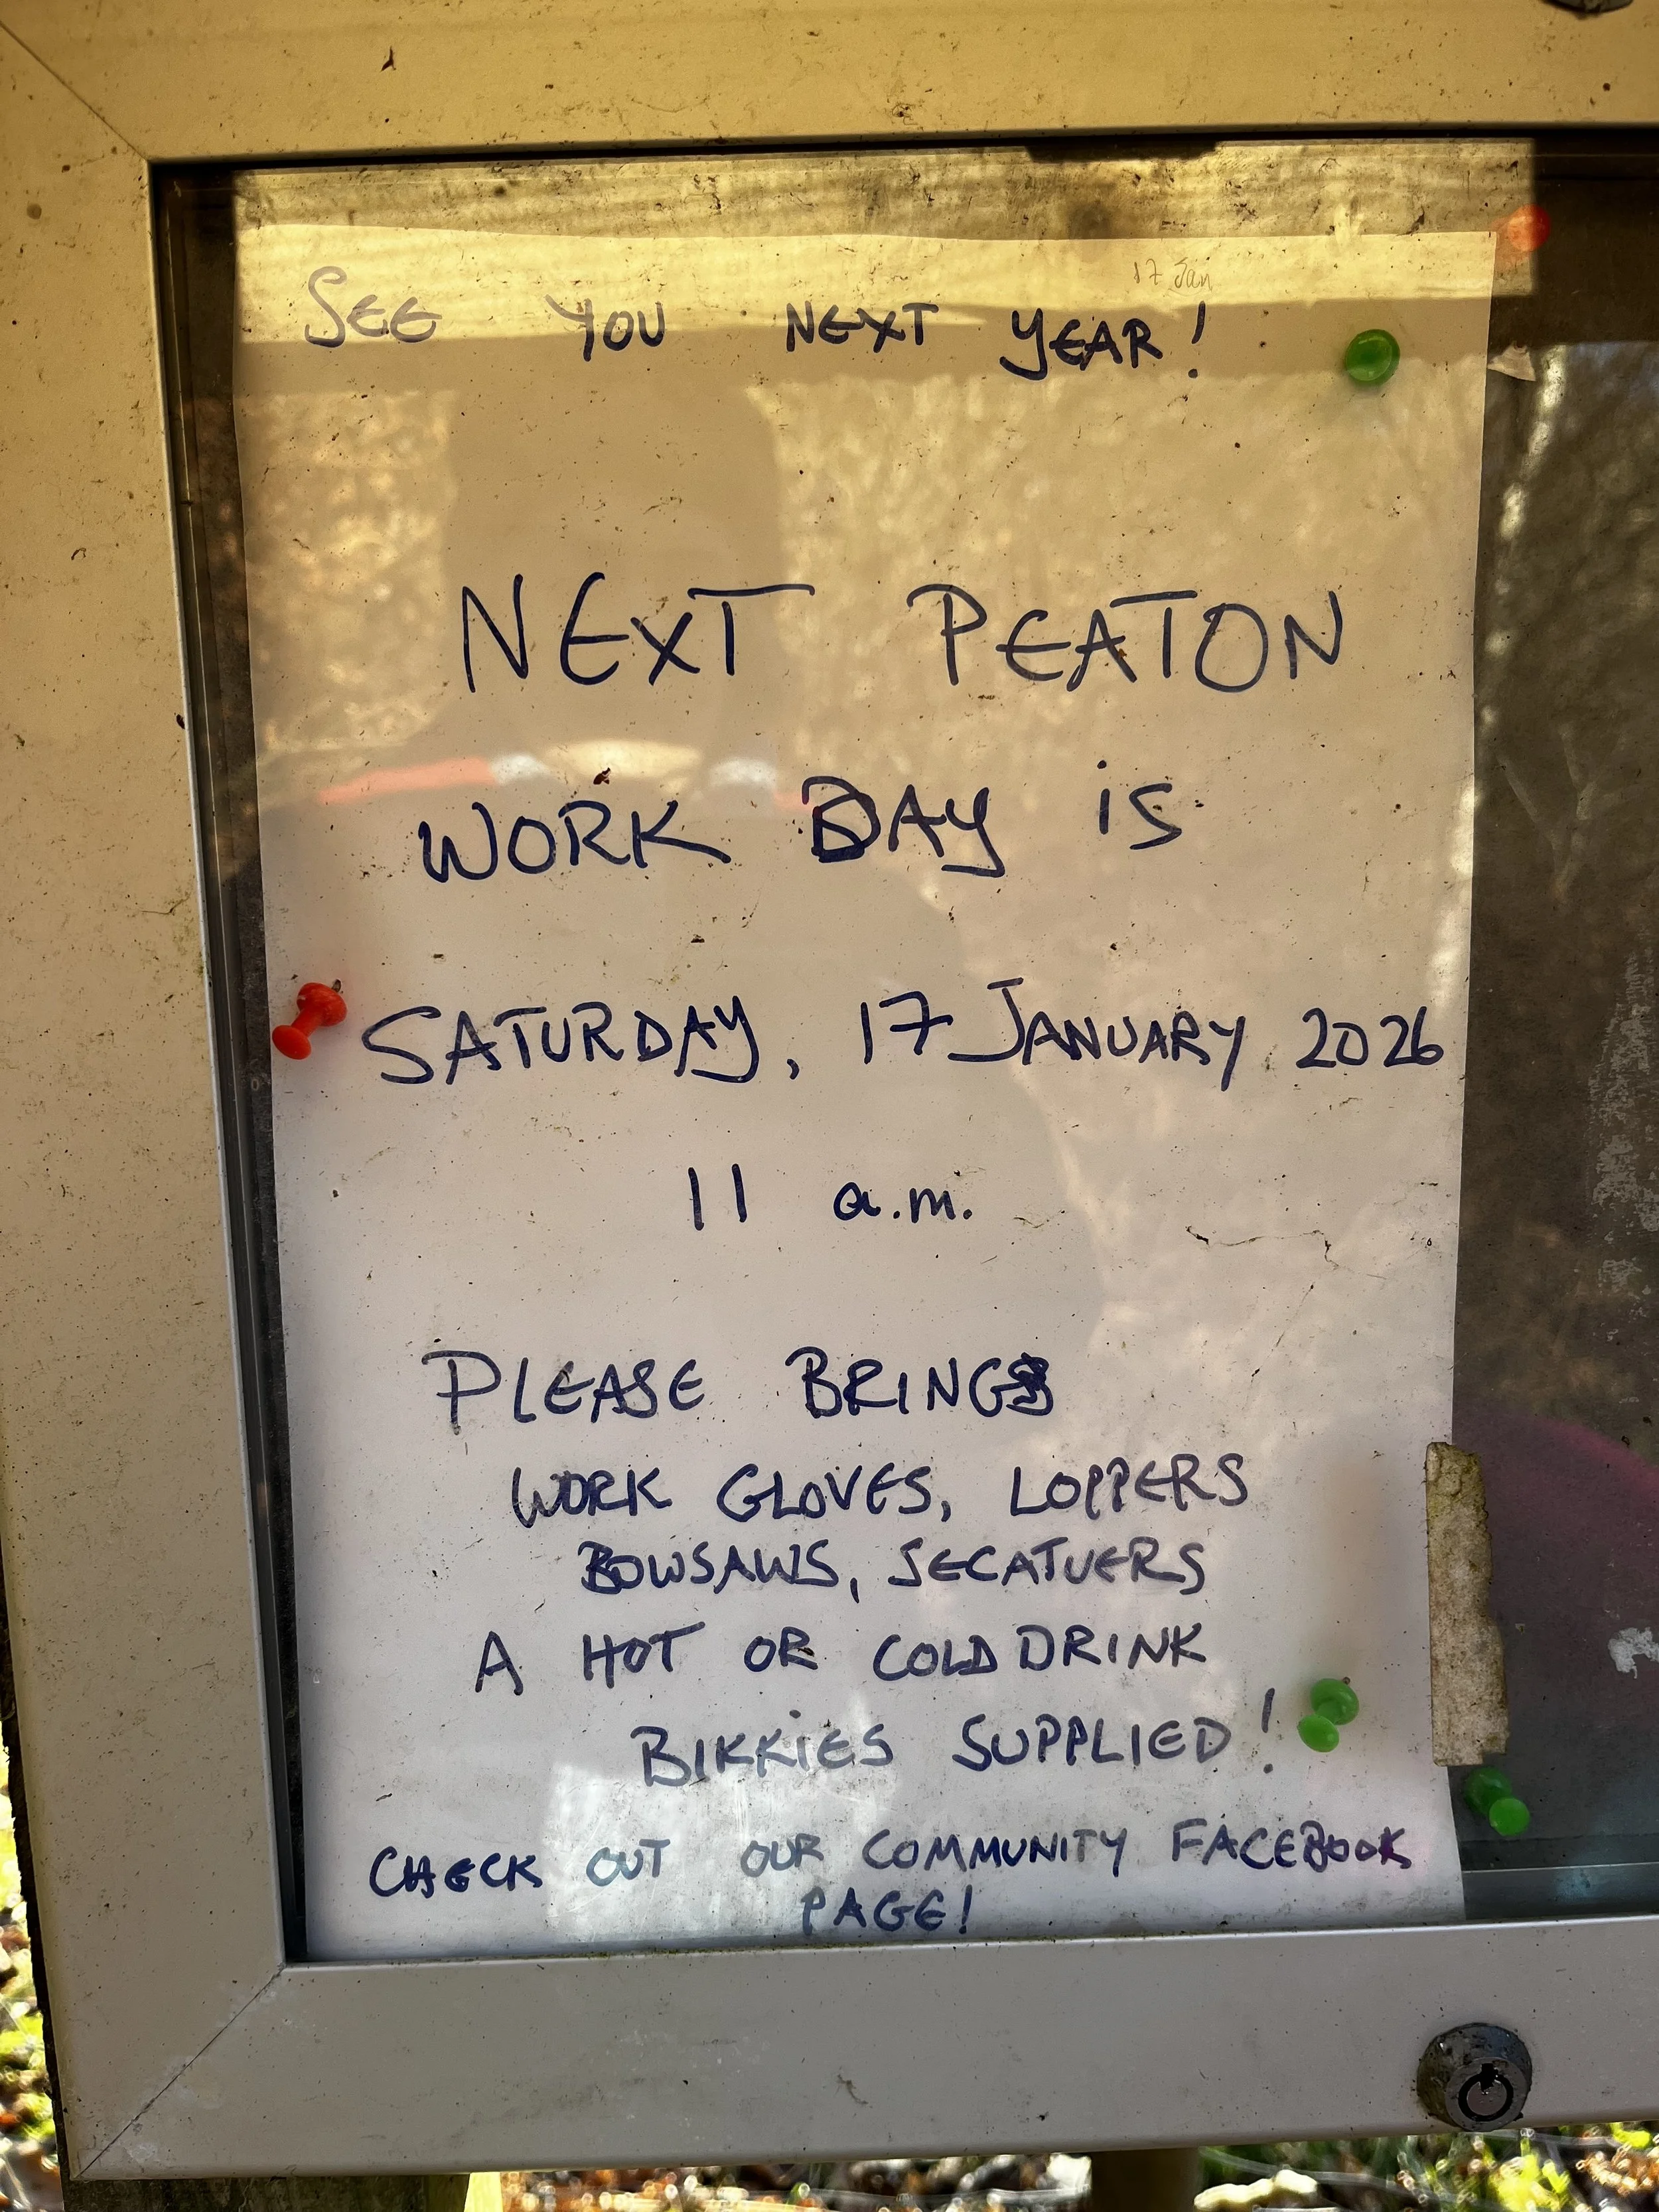 17 Jan
SEE YOU NEXT YEAR!
NEXT PEATON
WORK DAY is
SATURDAY, 17 JANUARY 2026
11 a.m.
PLEASE BRING
WORK GLOVES, LOPPERS
BOWSAWS, SECATUERS
A HOT OR COLD DRINK
BIKKiES SUPPLIED!
CHECK OUT OUR COMMUNITY FACEBOOK
PAGE!